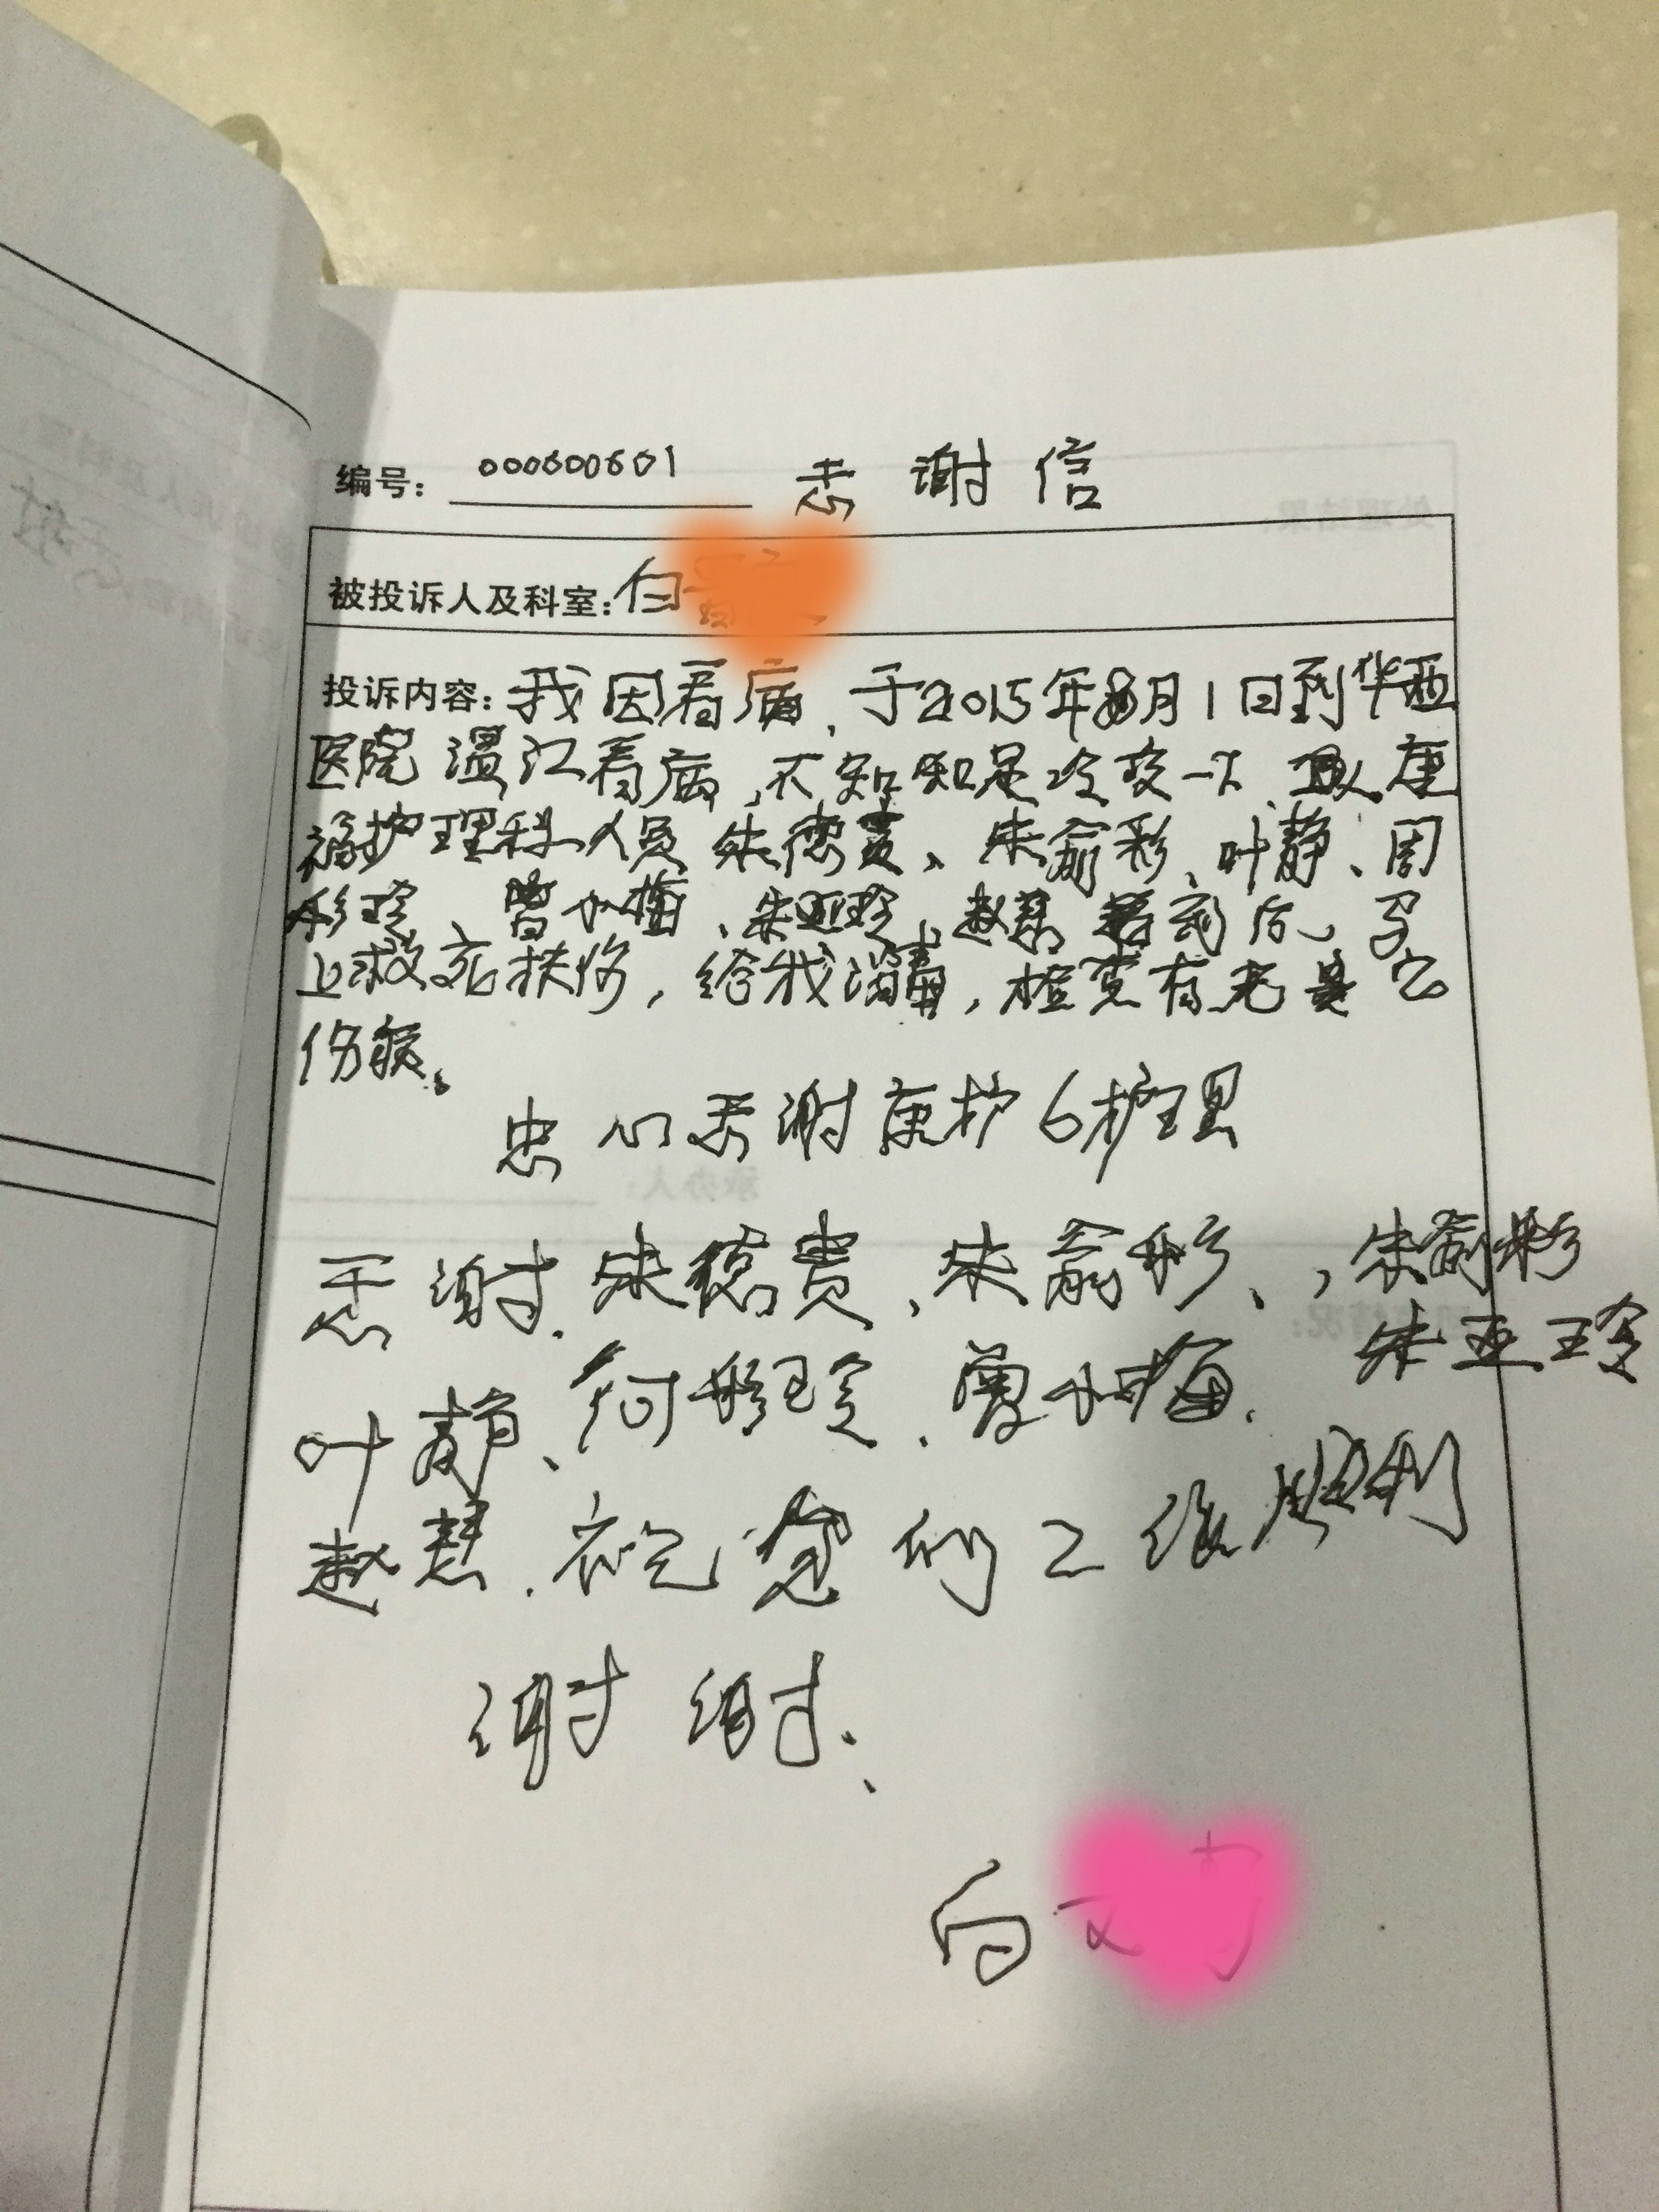 编号: 000600601 感谢信
被投诉人及科室: 白
投诉内容: 我因看病, 于2015年8月1日到华西
医院温江看病, 不知 一下 康
福护理科人员 朱德贵、朱俞彩、叶静、周
彤珍、曾小梅、朱亚珍、赵慧 后, 马
上救死扶伤, 给我消毒, 检查有无其它
伤痕。
忠心感谢康护6护理
感谢朱德贵、朱俞彤、, 朱俞彩
叶静、何彤珍、曾小梅、朱亚玲
赵慧. 祝您们工作顺利
谢谢、
白文